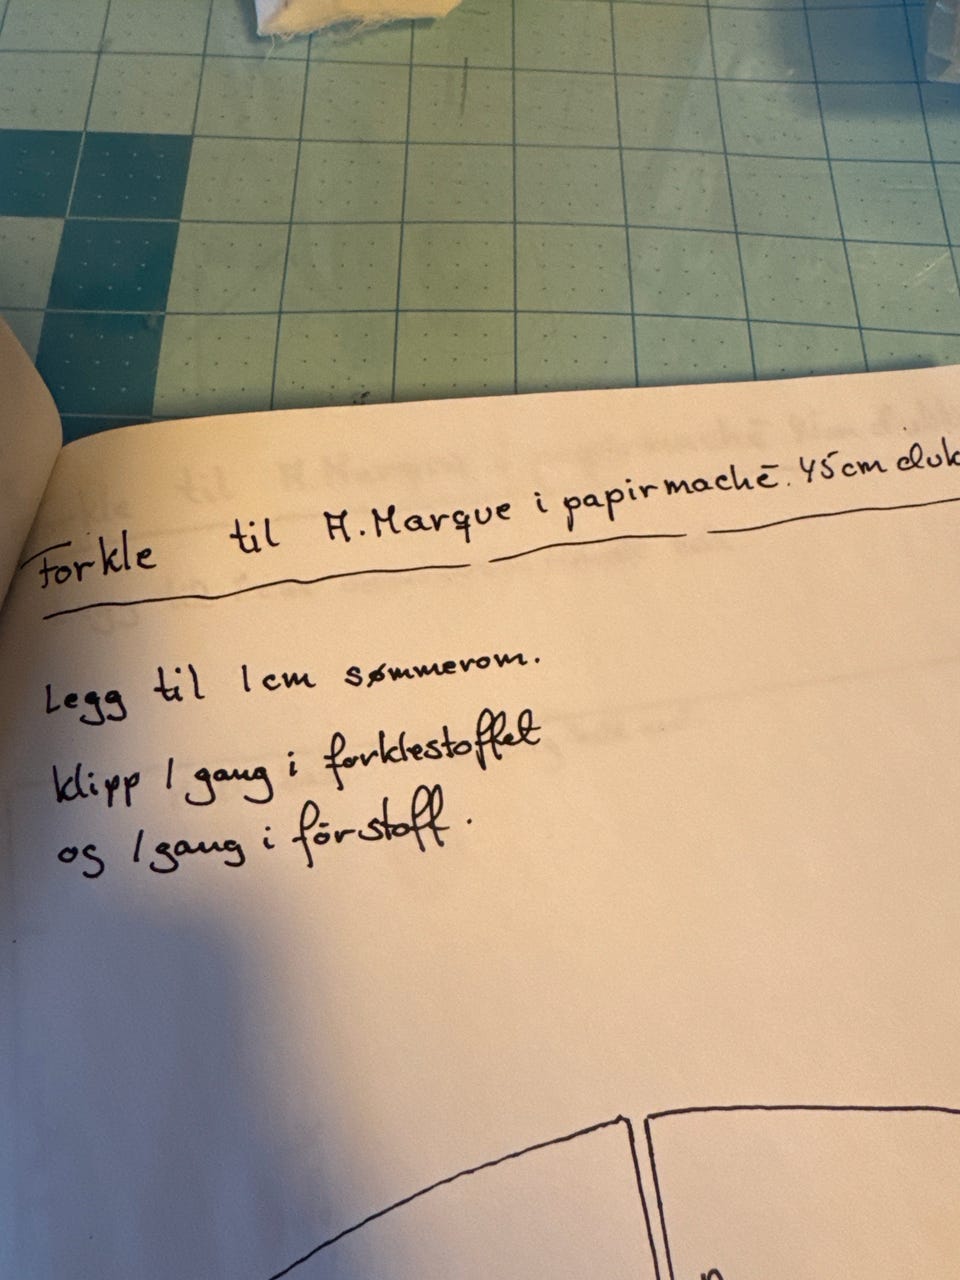 Forkle til A. Marque i papirmaché. 45cm duk
Legg til 1cm sømmerom.
klipp 1 gang i forklestoffet
og 1 gang i fôrstoff.